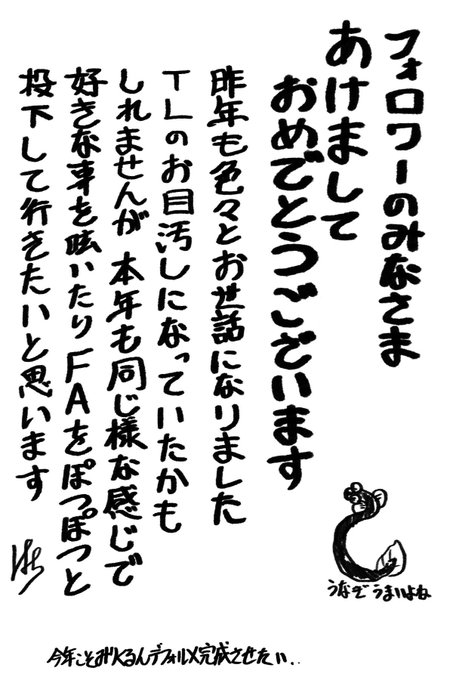 フォロワーのみなさま
あけまして
おめでとうございます
昨年も色々とお世話になりました
TLのお目汚しになっていたかも
しれませんが 本年も同じ様な感じで
好きな事を呟いたりFAをぽつぽつと
投下して行きたいと思います
うなぎ うまいよね
今年こそみくるんデフォルメ完成させたい..